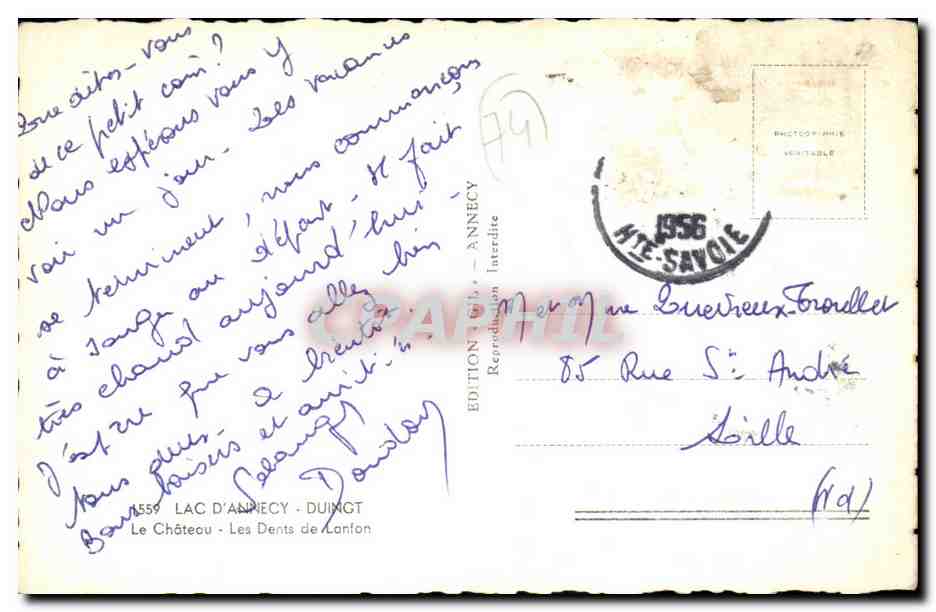 Que dites-vous
de ce petit coin?
Nous espérons vous y
voir un jour - Les vacances
se terminent, nous commençons
à songer au départ - Il fait
très chaud aujourd'hui -
J'espère que vous allez bien
tous deux - à bientôt.
Bons baisers et amitiés.
Doudou
1559 LAC D'ANNECY - DUINGT
Le Château - Les Dents de Lanfon
EDITION GIL - ANNECY
Reproduction Interdite
(74)
PHOTOGRAPHIE
VERITABLE
1956
HTE-SAVOIE
M et Mme
85 Rue St André
Lille
(Nd)
CPAPHIL